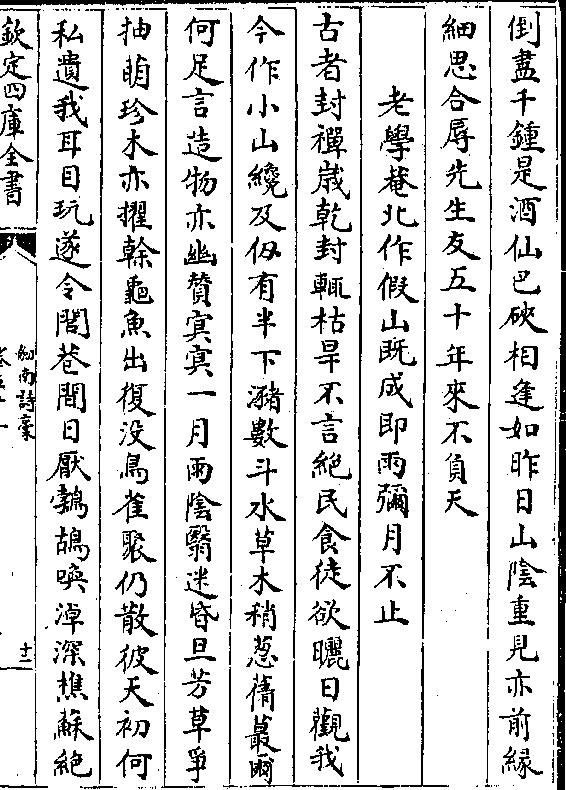 倒盡千鍾是酒仙巴峽相逢如昨日山陰重見亦前緣
細思合辱先生友五十年來不負天
老學菴北作假山既成即雨彌月不止
古者封禪歲乾封輒枯旱不言絶民食徒欲曬日觀我
今作小山纔及仭有半下瀦數斗水草木稍葱蒨蕞爾
何足言造物亦幽贊㝠㝠一月雨陰翳迷昏旦芳草爭
抽萌珍木亦擢幹龜魚出復没鳥雀聚仍散彼天初何
私遺我耳目玩遂令閭巷間日厭鵓鴣喚淖深樵蘇絶
欽定四庫全書
劍南詩藁
十二